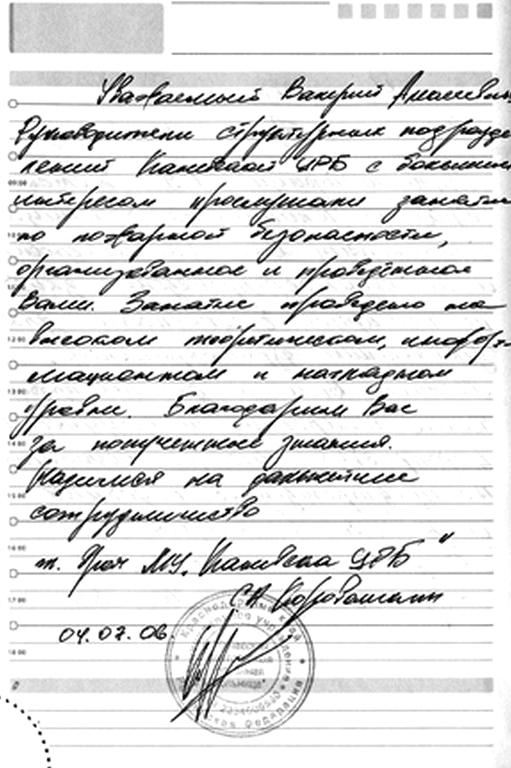 Уважаемый Валерий Алексеевич
Руководители структурных подразде
лений Каневской ЦРБ с большим
интересом прослушали занятие
по пожарной безопасности,
организованное и проведённое
Вами. Занятие проведено на
высоком теоретическом, инфор-
мационном и наглядном
уровне. Благодарим Вас
за полученные знания.
Надеемся на дальнейшее
сотрудничество
Врач МУ. "Каневская ЦРБ"
04.07.06
Краснодарский край